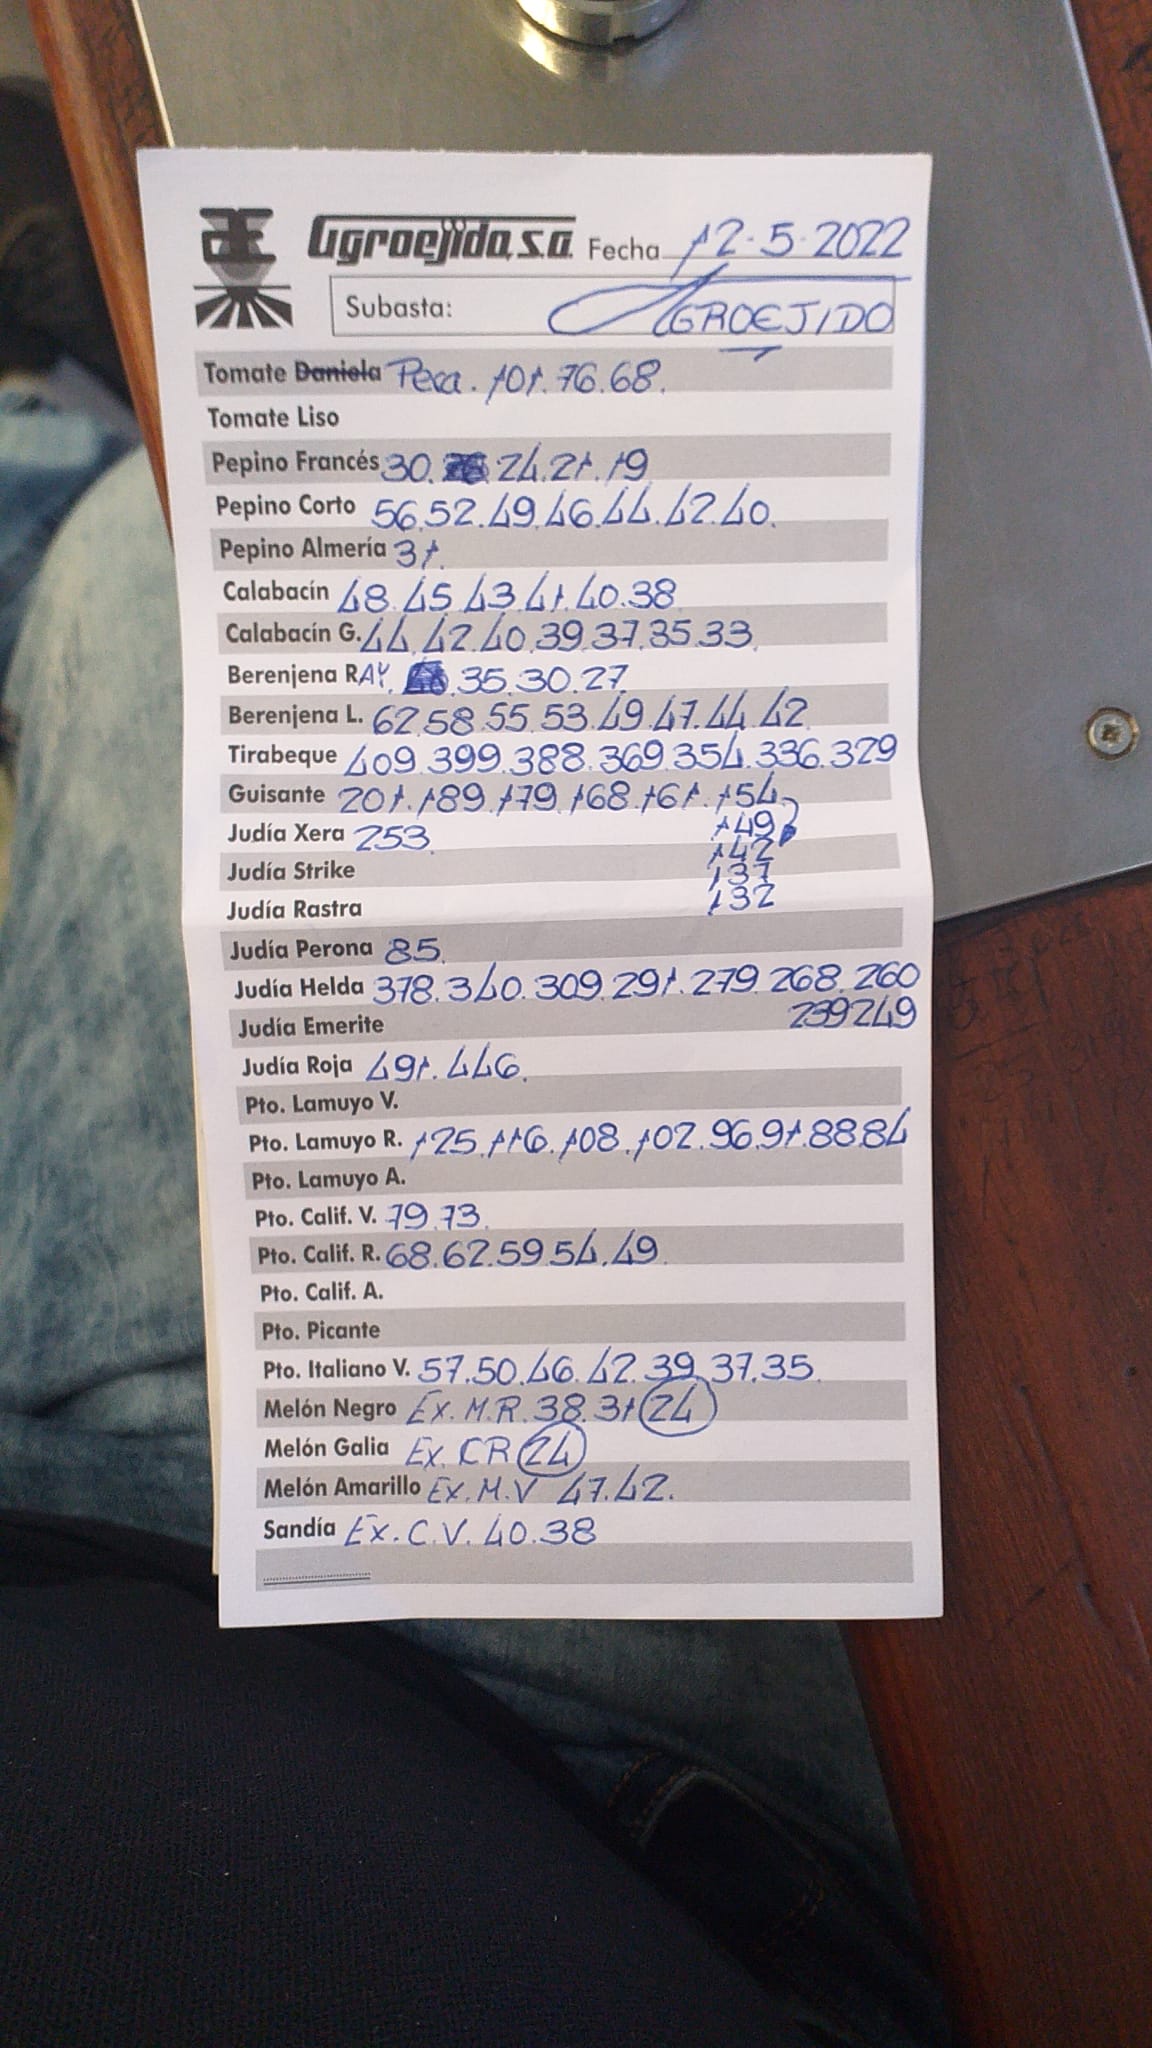 Agroejido, s.a. Fecha 12-5-2022
Subasta: AGROEJIDO
Tomate Daniela Pera. 101.76.68.
Tomate Liso
Pepino Francés 30. 24.21.19
Pepino Corto 56.52.49.46.44.42.40.
Pepino Almería 31.
Calabacín 48.45.43.41.40.38
Calabacín G. 44.42.40.39.37.35.33.
Berenjena RAY. 35.30.27
Berenjena L. 62.58.55.53.49.47.44.42
Tirabeque 409.399.388.369.354.336.329
Guisante 201.189.179.168.161.154
149
Judía Xera 253.
142
Judía Strike
137
132
Judía Rastra
Judía Perona 85.
Judía Helda 378.340.309.291.279.268.260
239 249
Judía Emerite
Judía Roja 491.446.
Pto. Lamuyo V.
Pto. Lamuyo R. 125.116.108.102.96.91.88.84
Pto. Lamuyo A.
Pto. Calif. V. 79.73.
Pto. Calif. R. 68.62.59.54.49
Pto. Calif. A.
Pto. Picante
Pto. Italiano V. 57.50.46.42.39.37.35.
Melón Negro Ex. M.R. 38.31 24
Melón Galia Ex. CR 24
Melón Amarillo Ex. M.V 47.42.
Sandía Ex. C.V. 40.38